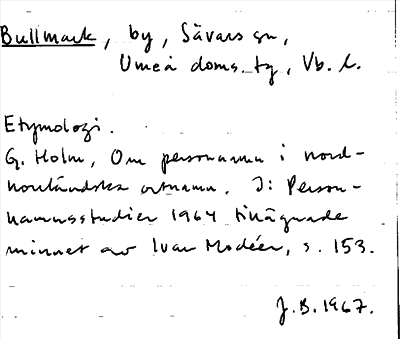 Bullmark, by, Sävars sn,
Umeå doms. tg, Vb. l.
Etymologi.
G. Holm, Om personnamn i nord-
norrländska ortnamn. I: Person-
namnsstudier 1964 tillägnade
minnet av Ivar Modéer, s. 153.
J.B. 1967.